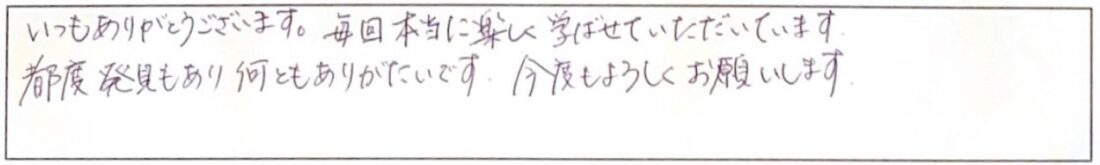 いつもありがとうございます。毎回本当に楽しく学ばせていただいています.
都度発見もあり何ともありがたいです. 今度もよろしくお願いします.